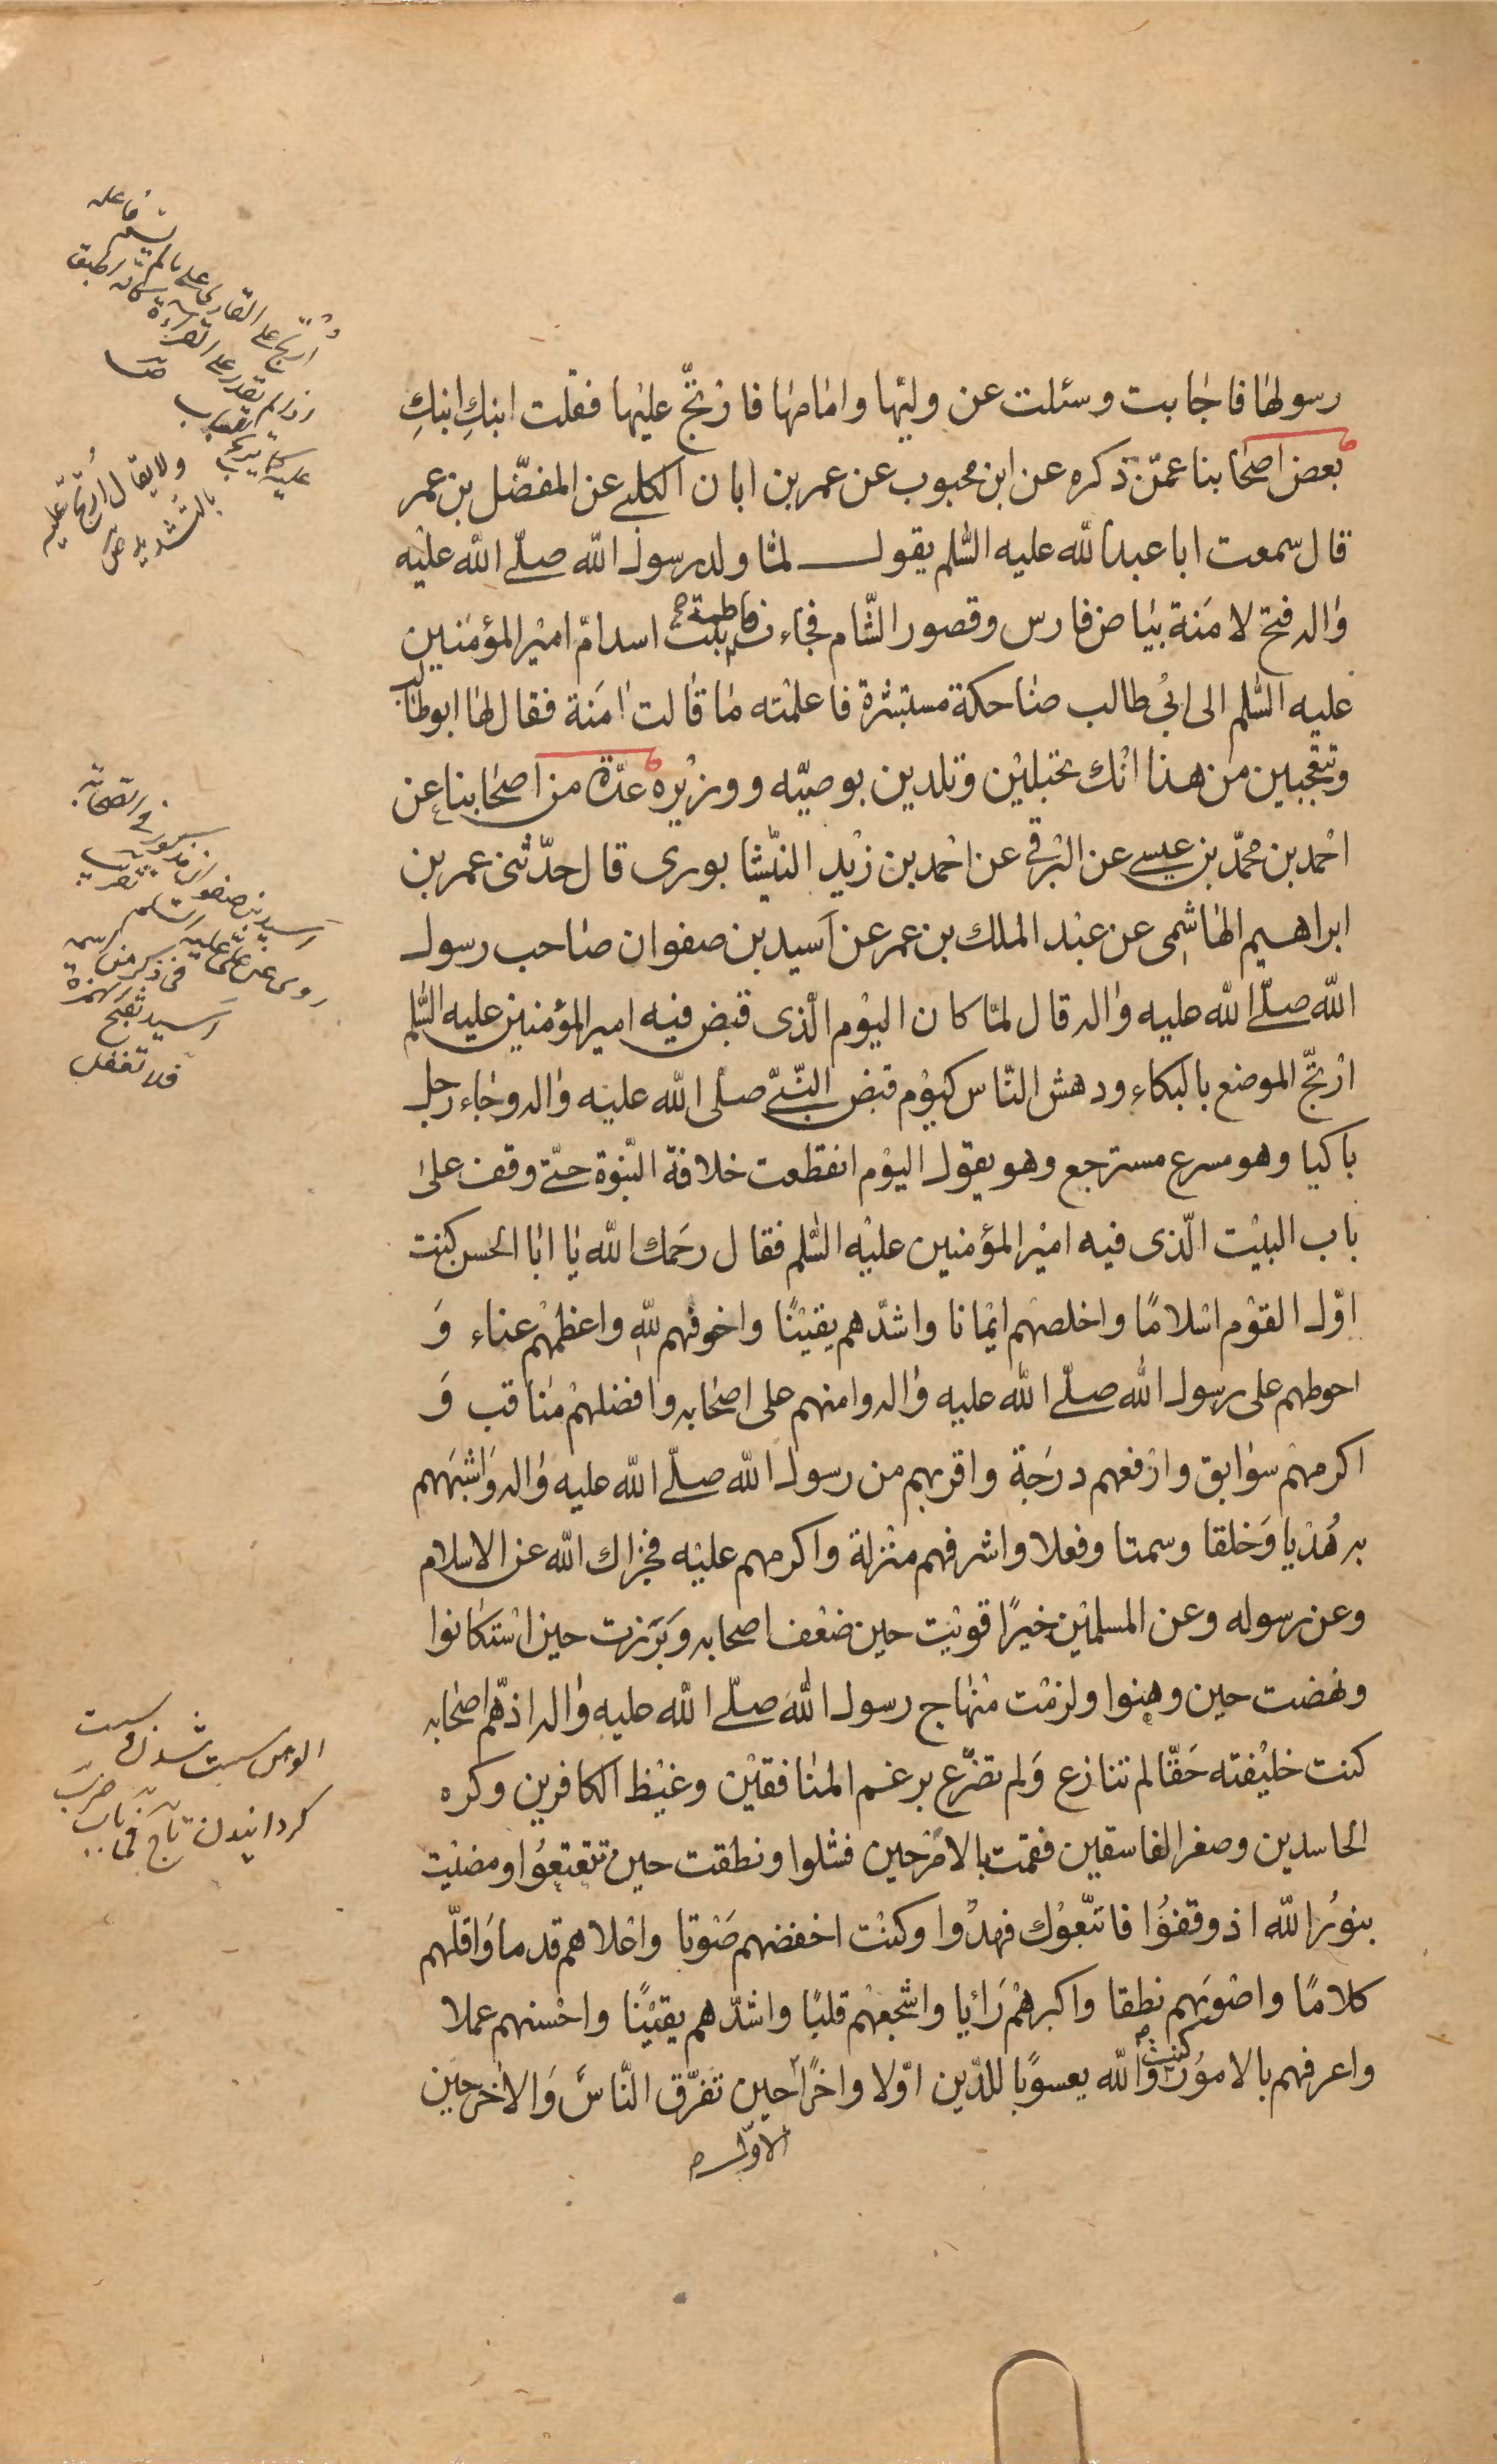 رسولها فاجابت وسئلت عن وليّها وامامها فارتجّ عليها فقلت ابنكِ ابنكِ
بعض اصحابنا عمّن ذكره عن ابن محبوب عن عمر بن ابان الكلبى عن المفضّل بن عمر
قال سمعت ابا عبد الله عليه السّلم يقول لمّا ولد رسول الله صلّى الله عليه
واله فتح لامنة بياض فارس وقصور الشّام فجاءت فاطمة بنت اسد امّ امير المؤمنين
عليه السّلم الى ابى طالب ضاحكة مستبشرة فاعلمته ما قالت امنة فقال لها ابوطالب
وتتعجّبين من هذا انّك تحبلين وتلدين بوصيّه ووزيره عدّة من اصحابنا عن
احمد بن محمّد بن عيسى عن البرقى عن احمد بن زيد النيّشابورى قال حدّثنى عمر بن
ابراهيم الهاشمى عن عبد الملك بن عمر عن اَسيد بن صفوان صاحب رسول
الله صلّى الله عليه واله قال لمّا كان اليوم الّذى قبض فيه امير المؤمنين عليه السّلم
ارتجّ الموضع بالبكاء ودهش النّاس كيوم قبض النّبىّ صلّى الله عليه واله وجاء رجل
باكيا وهو مسرع مسترجع وهو يقول اليوم انقطعت خلافة النّبوة حتّى وقف على
باب البيت الّذى فيه امير المؤمنين عليه السّلم فقال رحمك الله يا ابا الحسن كنت
اوّل القوم اسلامًا واخلصهم ايمانا واشدّهم يقينًا واخوفهم للّهِ واعظمهم عناء وَ
احوطهم على رسول الله صلّى الله عليه واله وامنهم على اصحابه وافضلهم مناقب وَ
اكرمهم سوابق وارفعهم درَجة واقربهم من رسول الله صلّى الله عليه واله واشبههم
به هُدْيا وَخلقا وسمتا وفعلا واشرفهم منزلة واكرمهم عليه فجزاك الله عن الاسلام
وعن رسوله وعن المسلمين خيرًا قويت حين ضعف اصحابه وبَرَزت حين استكانوا
ونهضت حين وهنوا ولزمت منهاج رسول الله صلّى الله عليه واله اذ همّ اصحابه
كنت خليفته حَقّا لم تنازع وَلم تضرّع برغم المنافقين وغيظ الكافرين وكره
الحاسدين وصغر الفاسقين فقمت بالامر حين فشلوا ونطقت حين تتعتعُوا ومضيت
بنورُ الله اذ وقفوُا فاتّبعوك فهدُوا وكنت اخفضهم صَوتا واعلاهم قدما وَاقلّهم
كلامًا واصوَبهم نطقا واكبرهم رَايا واشجعهم قلبًا واشدّهم يقينًا واحسنهم عملا
واعرفهم بالاموُر كنت والله يعسوبًا للدّين اوّلا واخرًا حين تفرّق النّاسُ وَالاخر حين
الاوّل
ولا يقال اُرتجّ عليه
بالتّشديد ص
روى عن علىّ عليه السّلم
فلا تغفل
الوهن سست شدن
كردانيدن تاج فى باب ضرب